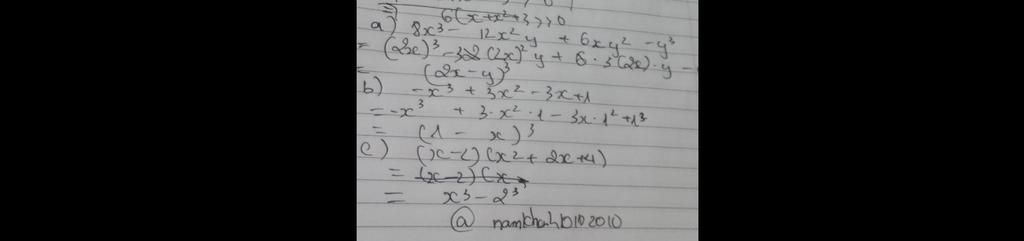 6(x+x²+3)>0
a) 8x³ - 12x²y + 6xy² - y³
= (2x)³ - 3 (2x)² y + 6 · 3(2x) · y -
= (2x - y)³
b) -x³ + 3x² - 3x + 1
= -x³ + 3·x²·1 - 3x·1² + 1³
= (1 - x)³
c) (x-2)(x²+2x+4)
= (x-2)(x
= x³ - 2³
@ namkhanh10102010